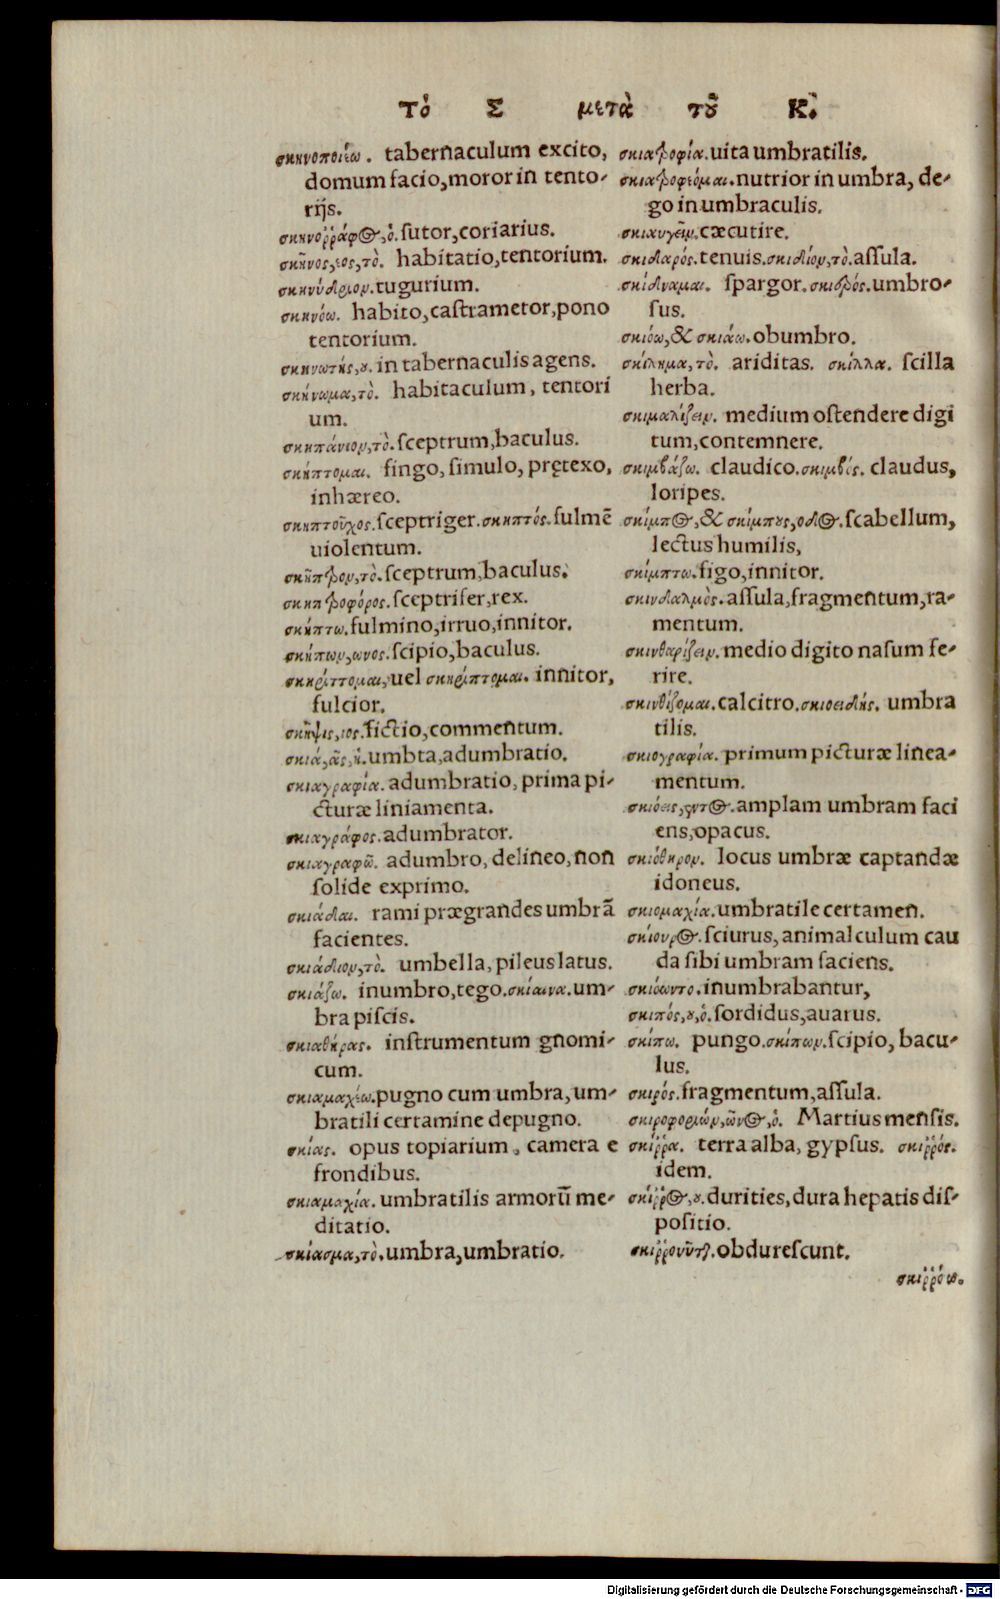 Τὸ Σ μετὰ τοῦ Κ.
σκηνοποιέω. tabernaculum excito,
domum facio, moror in tento-
rijs.
σκηνοῤῥάφος, ὁ. sutor, coriarius.
σκῆνος, εος, τὸ. habitatio, tentorium.
σκηνύδριον. tugurium.
σκηνόω. habito, castrametor, pono
tentorium.
σκηνωτής, ου. in tabernaculis agens.
σκήνωμα, τὸ. habitaculum, tentori
um.
σκηπάνιον, τὸ. sceptrum, baculus.
σκήπτομαι. fingo, simulo, prętexo,
inhæreo.
σκηπτοῦχος. sceptriger. σκηπτός. fulmẽ
uiolentum.
σκῆπτρον, τὸ. sceptrum, baculus.
σκηπτροφόρος. sceptrifer, rex.
σκήπτω. fulmino, irruo, innitor.
σκήπων, ωνος. scipio, baculus.
σκηρίττομαι, uel σκηρίπτομαι. innitor,
fulcior.
σκῆψις, ιος. fictio, commentum.
σκιά, ᾶς, ἡ. umbta, adumbratio.
σκιαγραφία. adumbratio, prima pi-
cturæ liniamenta.
σκιαγράφος. adumbrator.
σκιαγραφῶ. adumbro, delineo, non
solide exprimo.
σκιάδαι. rami prægrandes umbrã
facientes.
σκιάδιον, τὸ. umbella, pileus latus.
σκιάζω. inumbro, tego. σκίαινα. um-
bra piscis.
σκιαθήρας. instrumentum gnomi-
cum.
σκιαμαχέω. pugno cum umbra, um-
bratili certamine depugno.
σκίας. opus topiarium, camera e
frondibus.
σκιαμαχία. umbratilis armorũ me-
ditatio.
σκίασμα, τὸ. umbra, umbratio.
σκιατροφία. uita umbratilis.
σκιατροφέομαι. nutrior in umbra, de-
go in umbraculis.
σκιαυγεῖν. cæcutire.
σκιδαρός. tenuis. σκιδίον, τὸ. assula.
σκίδναμαι. spargor. σκιδρός. umbro-
sus.
σκιόω, & σκιάω. obumbro.
σκίλημα, τὸ. ariditas. σκίλλα. scilla
herba.
σκιμαλίζειν. medium ostendere digi
tum, contemnere.
σκιμβάζω. claudico. σκιμβός. claudus,
loripes.
σκίμπος, & σκίμπους, οδος. scabellum,
lectus humilis,
σκίμπτω. figo, innitor.
σκινδαλμὸς. assula, fragmentum, ra-
mentum.
σκινθαρίζειν. medio digito nasum fe-
rire.
σκινθίζομαι. calcitro. σκιοειδής. umbra
tilis.
σκιογραφία. primum picturæ linea-
mentum.
σκιόεις, εντος. amplam umbram faci
ens, opacus.
σκιόθηρον. locus umbræ captandæ
idoneus.
σκιομαχία. umbratile certamen.
σκίουρος. sciurus, animalculum cau
da sibi umbram faciens.
σκιόωντο. inumbrabantur,
σκιπός, ου, ὁ. sordidus, auarus.
σκίπω. pungo. σκίπων. scipio, bacu-
lus.
σκιρός. fragmentum, assula.
σκιροφοριών, ῶνος, ὁ. Martius mensis.
σκίῤῥα. terra alba, gypsus. σκιῤῥός.
idem.
σκίῤῥος, ου. durities, dura hepatis dis-
positio.
σκιῤῥοῦνται. obdurescunt.
σκιῤῥόω.
Digitalisierung gefördert durch die Deutsche Forschungsgemeinschaft - DFG